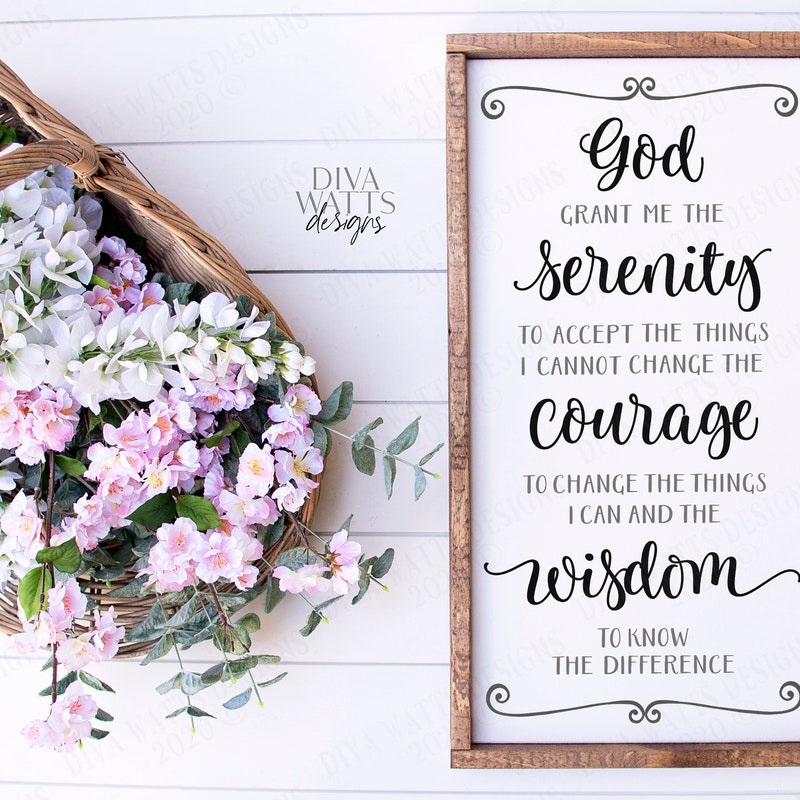 DIVA
WATTS
designs
God
GRANT ME THE
serenity
TO ACCEPT THE THINGS
I CANNOT CHANGE THE
courage
TO CHANGE THE THINGS
I CAN AND THE
wisdom
TO KNOW
THE DIFFERENCE
DIVA WATTS DESIGNS
2020 ©